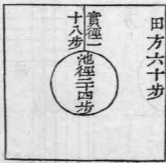 田方六十步
實徑一
十八步
池徑二十四步